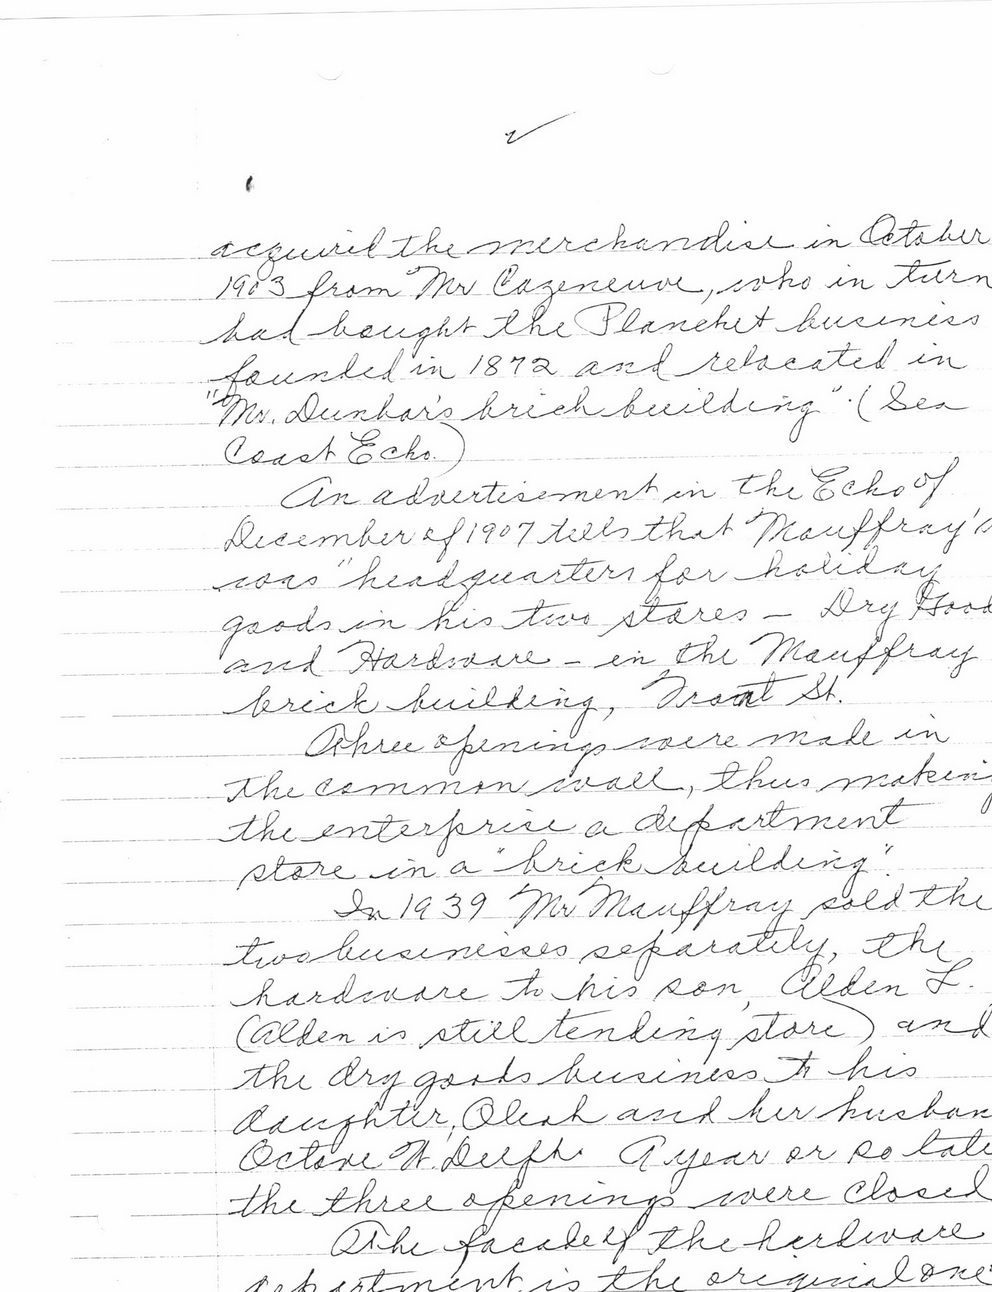 acquired the merchandise in October
1903 from Mr Cazeneuve, who in turn
had bought the Planchet business
founded in 1872 and relocated in
"Mr. Dunbar's brick building". (Sea
Coast Echo.)
An advertisement in the Echo of
December of 1907 tells that Mauffray's
was "headquarters for holiday
goods in his two stores – Dry Good
and Hardware – in the Mauffray
brick building, Front St.
Three openings were made in
the common wall, thus making
the enterprise a department
store in a "brick building".
In 1939 Mr Mauffray sold the
two businesses separately, the
hardware to his son, Alden L.
(Alden is still tending store) and
the dry goods business to his
daughter, and her husban
Octave W. A year or so late
the three openings were closed
The facade of the hardware
department is the original one